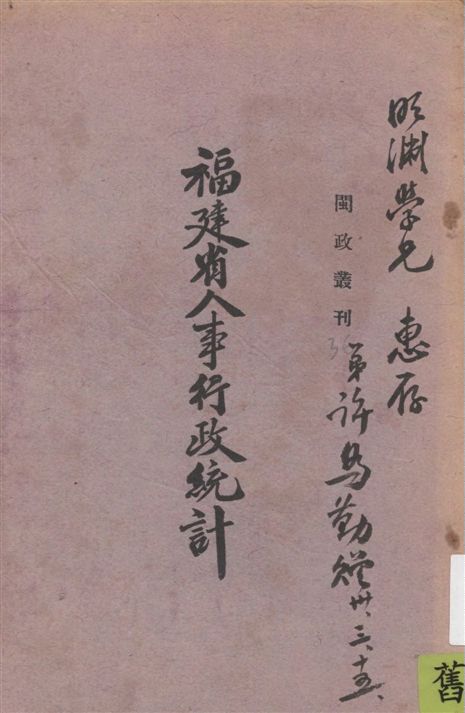 明渊學兄 惠存
閩政叢刊
36
弟許為勤贈 卅、三、十五、
福建省人事行政統計
舊